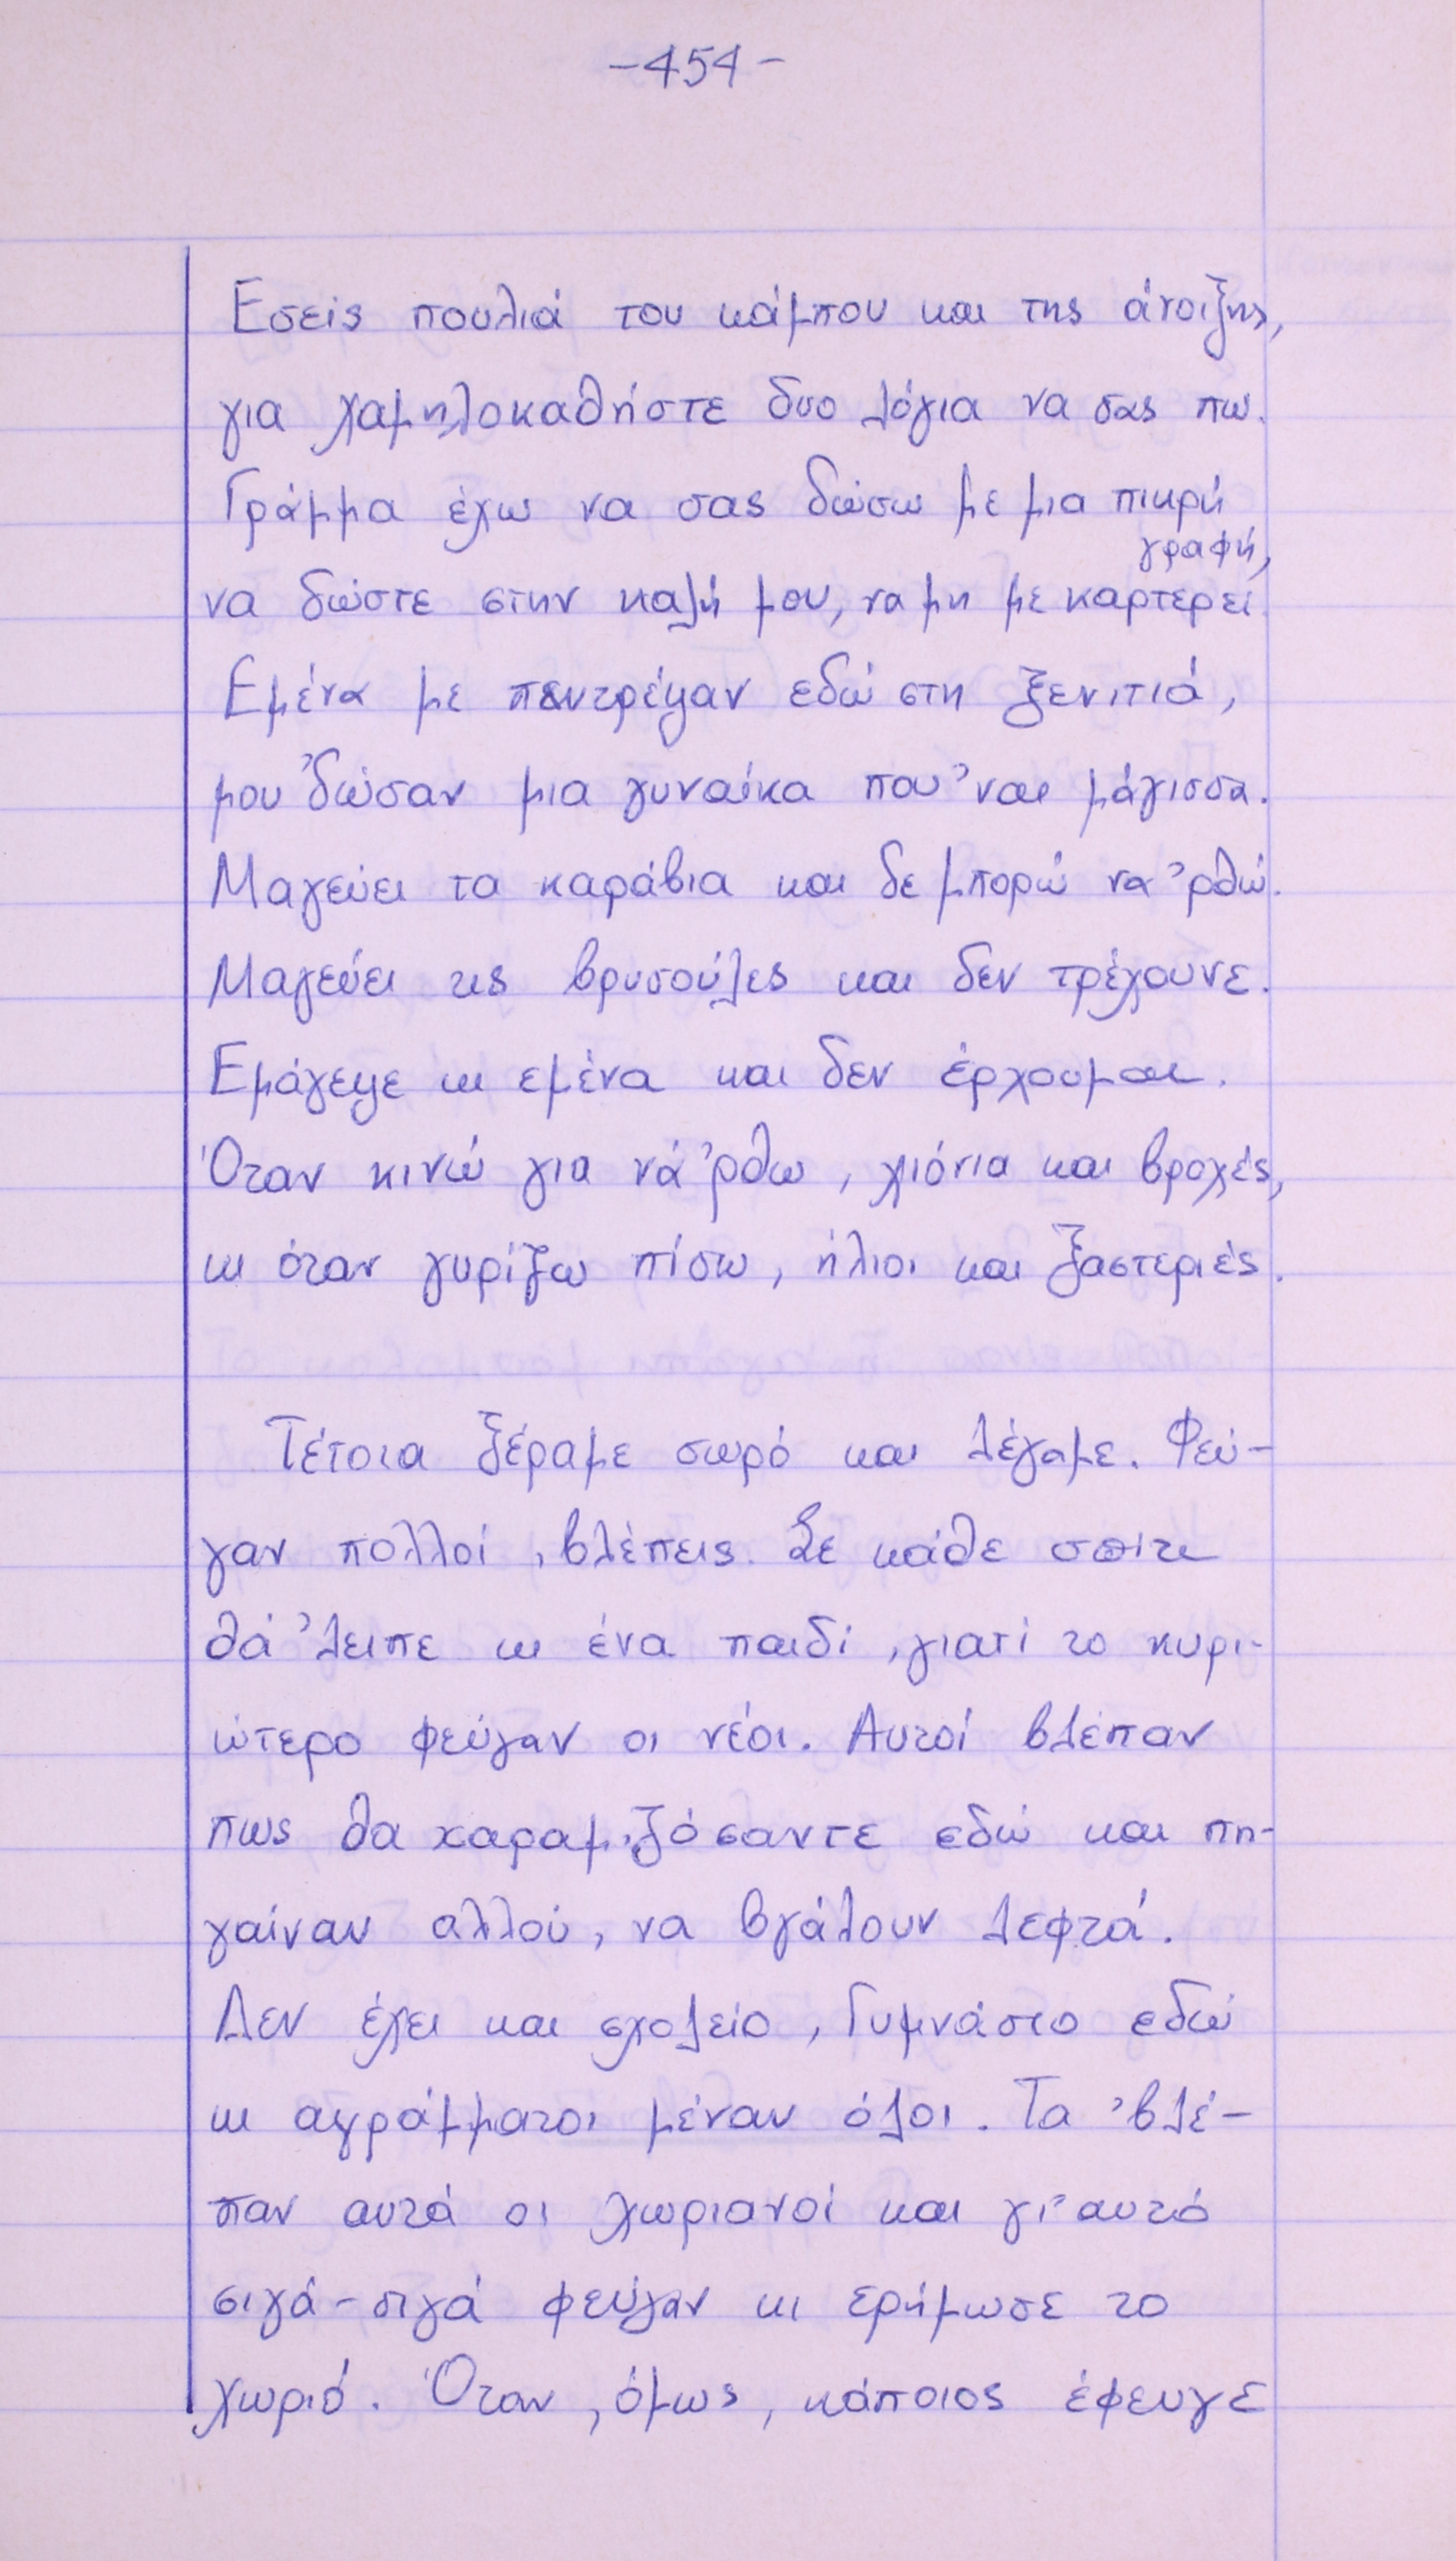 -454-
Εσείς πουλιά του κάμπου και της άνοιξης,
για χαμηλοκαθήστε δυο λόγια να σας πω.
Γράμμα έχω να σας δώσω με μια πικρή
γραφή,
να δώστε στην καλή μου, να μη με καρτερεί.
Εμένα με παντρέψαν εδώ στη ξενιτιά,
μου 'δώσαν μια γυναίκα που 'ναι μάγισσα.
Μαγεύει τα καράβια και δε μπορώ να 'ρθώ.
Μαγεύει τις βρυσούλες και δεν τρέχουνε.
Εμάγεψε κι εμένα και δεν έρχουμαι.
Όταν κινώ για νά 'ρθω, χιόνια και βροχές,
κι όταν γυρίζω πίσω, ήλιοι και ξαστεριές.
Τέτοια ξέραμε σωρό και λέγαμε. Φεύ-
γαν πολλοί, βλέπεις. Σε κάθε σπίτι
θά 'λειπε κι ένα παιδί, γιατί το κυρι-
ώτερο φεύγαν οι νέοι. Αυτοί βλέπαν
πως θα χαραμιζόσαντε εδώ και πη-
γαίναν αλλού, να βγάλουν λεφτά.
Δεν έχει και σχολείο, Γυμνάσιο εδώ
κι αγράμματοι μέναν όλοι. Τα 'βλέ-
παν αυτά οι χωριανοί και γι' αυτό
σιγά-σιγά φεύγαν κι ερήμωσε το
χωριό. Όταν, όμως, κάποιος έφευγε